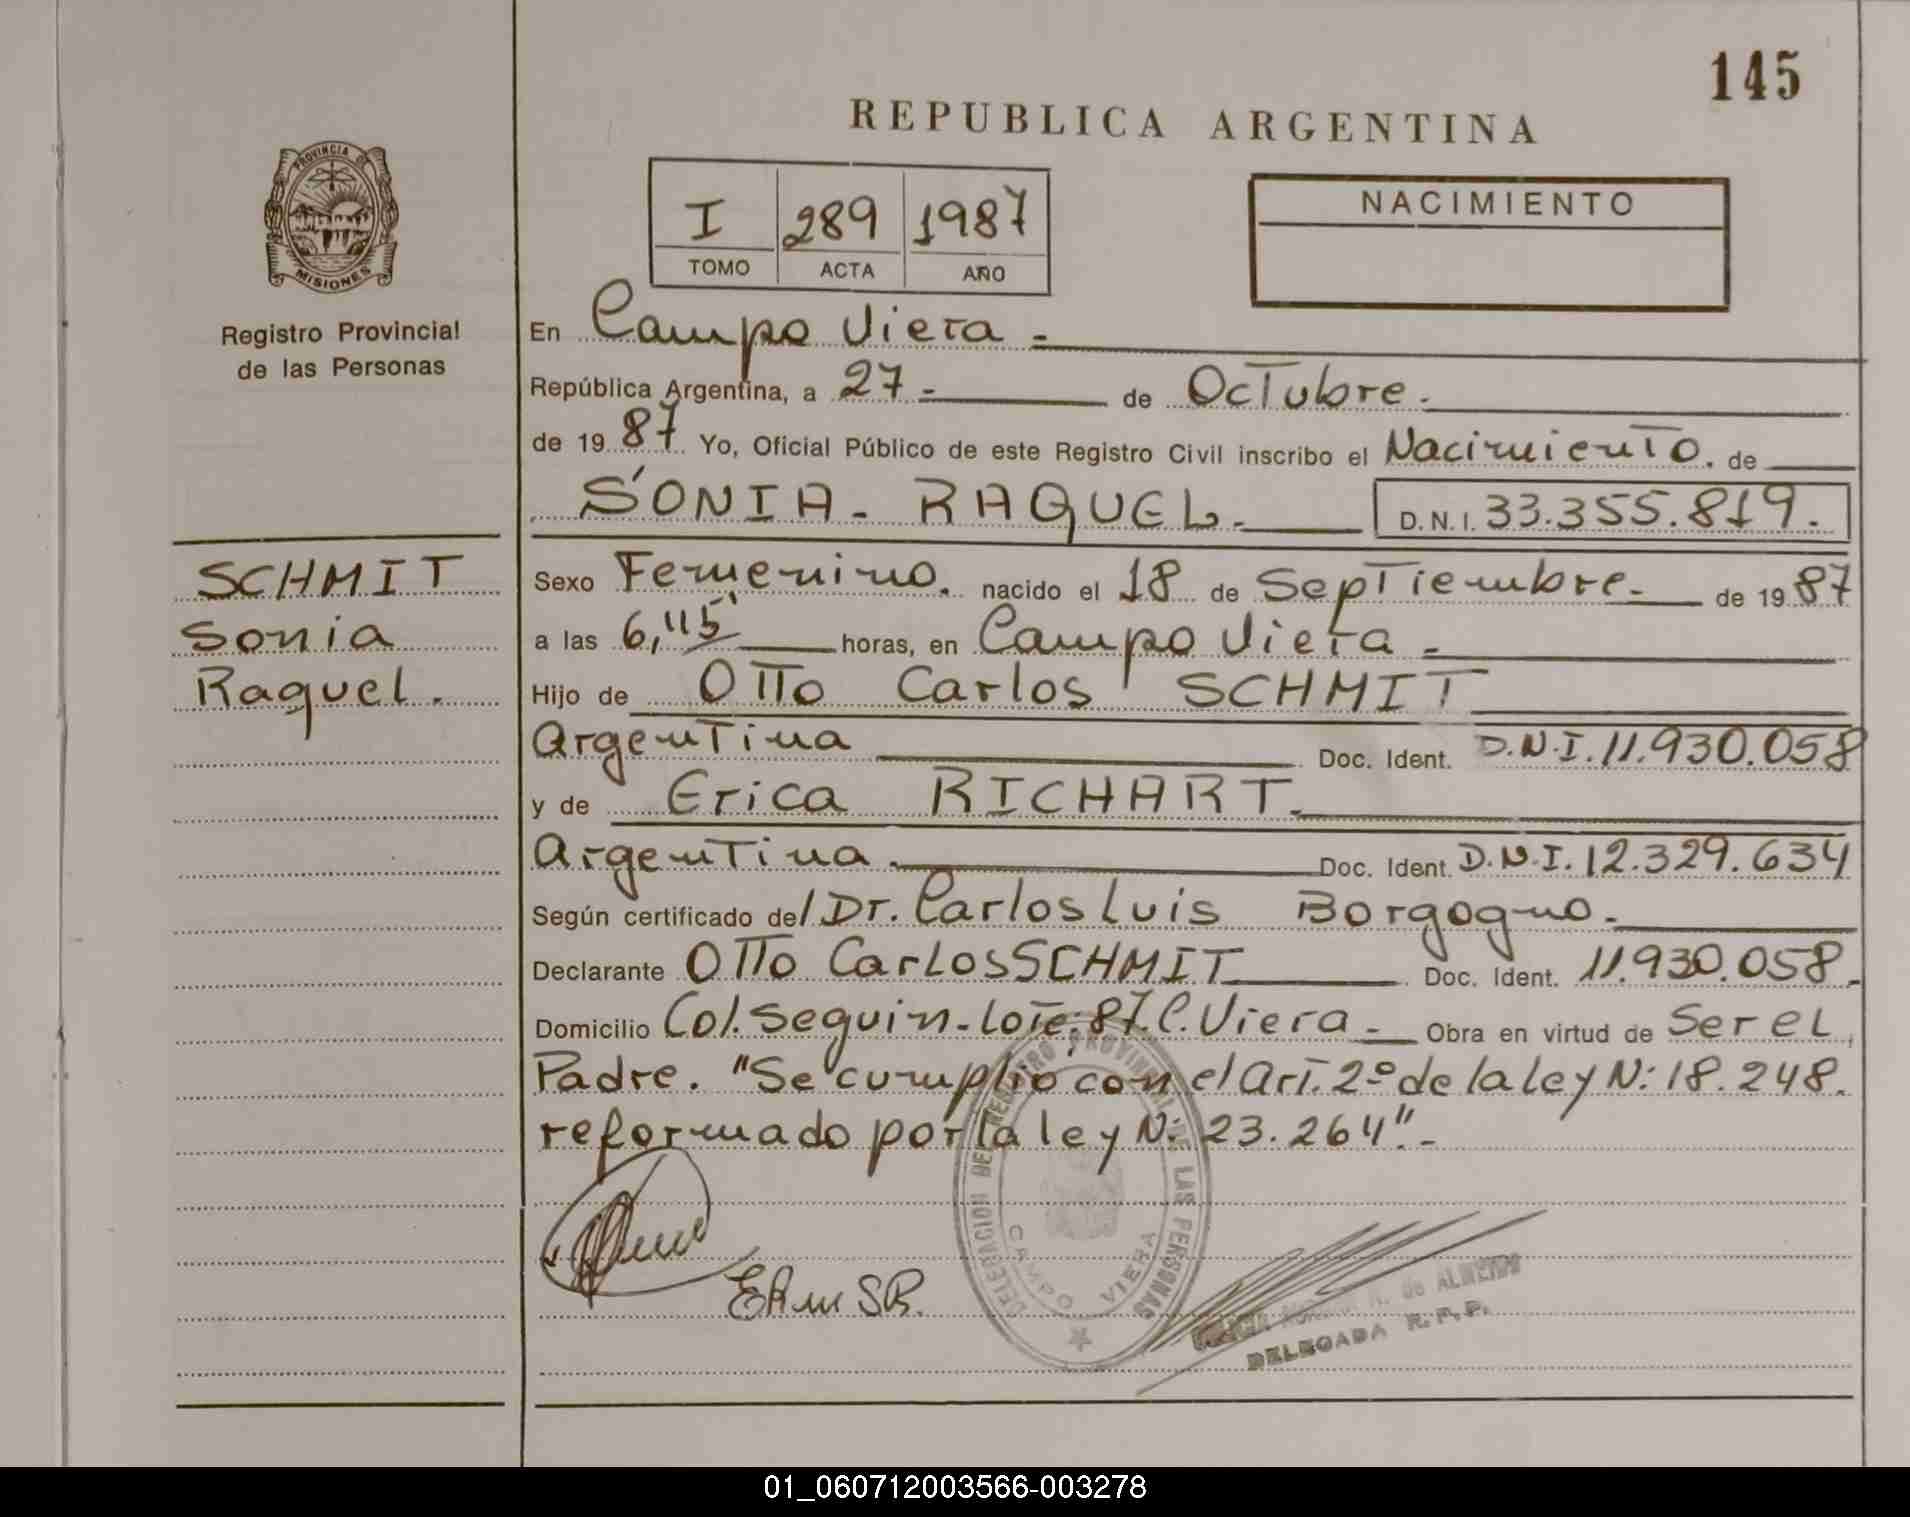 145
REPUBLICA ARGENTINA
PROVINCIA DE
MISIONES
Registro Provincial
de las Personas
I 289 1987
TOMO ACTA AÑO
NACIMIENTO
En Campo Viera -
República Argentina, a 27 - de Octubre.
de 1987 Yo, Oficial Público de este Registro Civil inscribo el Nacimiento. de
SONIA - RAQUEL - D.N.I. 33.355.819.
SCHMIT
Sonia
Raquel.
Sexo Femenino. nacido el 18 de Septiembre - de 1987
a las 6, horas, en Campo Viera -
Hijo de Otto Carlos SCHMIT
Argentina Doc. Ident. D.N.I. 11.930.058
y de Erica RICHART.
Argentina. Doc. Ident. D.N.I. 12.329.634
Según certificado del Dr. Carlos Luis Borgogno.
Declarante Otto Carlos SCHMIT Doc. Ident. 11.930.058 -
Domicilio Col. Seguin - Lote: 87. C. Viera - Obra en virtud de Ser el
Padre. "Se cumplió con el Art. 2º de la ley N: 18.248.
reformado por la ley N: 23.264". -
DELEGACION DEL REGISTRO PROVINCIAL DE LAS PERSONAS
CAMPO VIERA
de ALMEIDA
DELEGADA R.P.P.
01_060712003566-003278